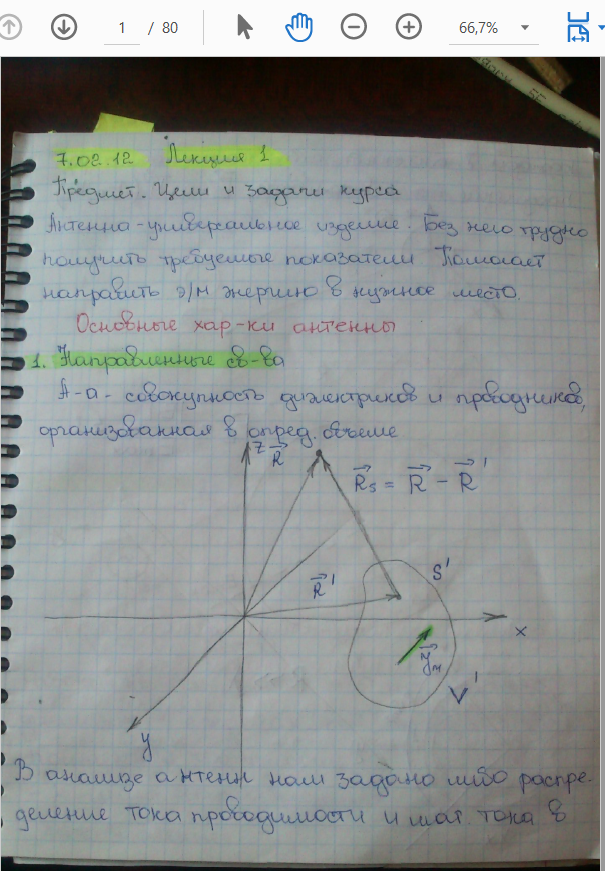 1 / 80 66,7%
7.02.12 Лекция 1
Предмет. Цели и задачи курса
Антенна - универсальное изделие. Без него трудно
получить требуемые показатели. Помогает
направить э/м энергию в нужное место.
Основные хар-ки антенны
1. Направленные св-ва
А-а - совокупность диэлектриков и проводников,
организованная в опред. объеме
z R⃗
R⃗s = R⃗ - R⃗'
S'
R⃗'
x
V'
y
В анализе антенн нам задано либо распре-
деление тока проводимости и маг. тока в